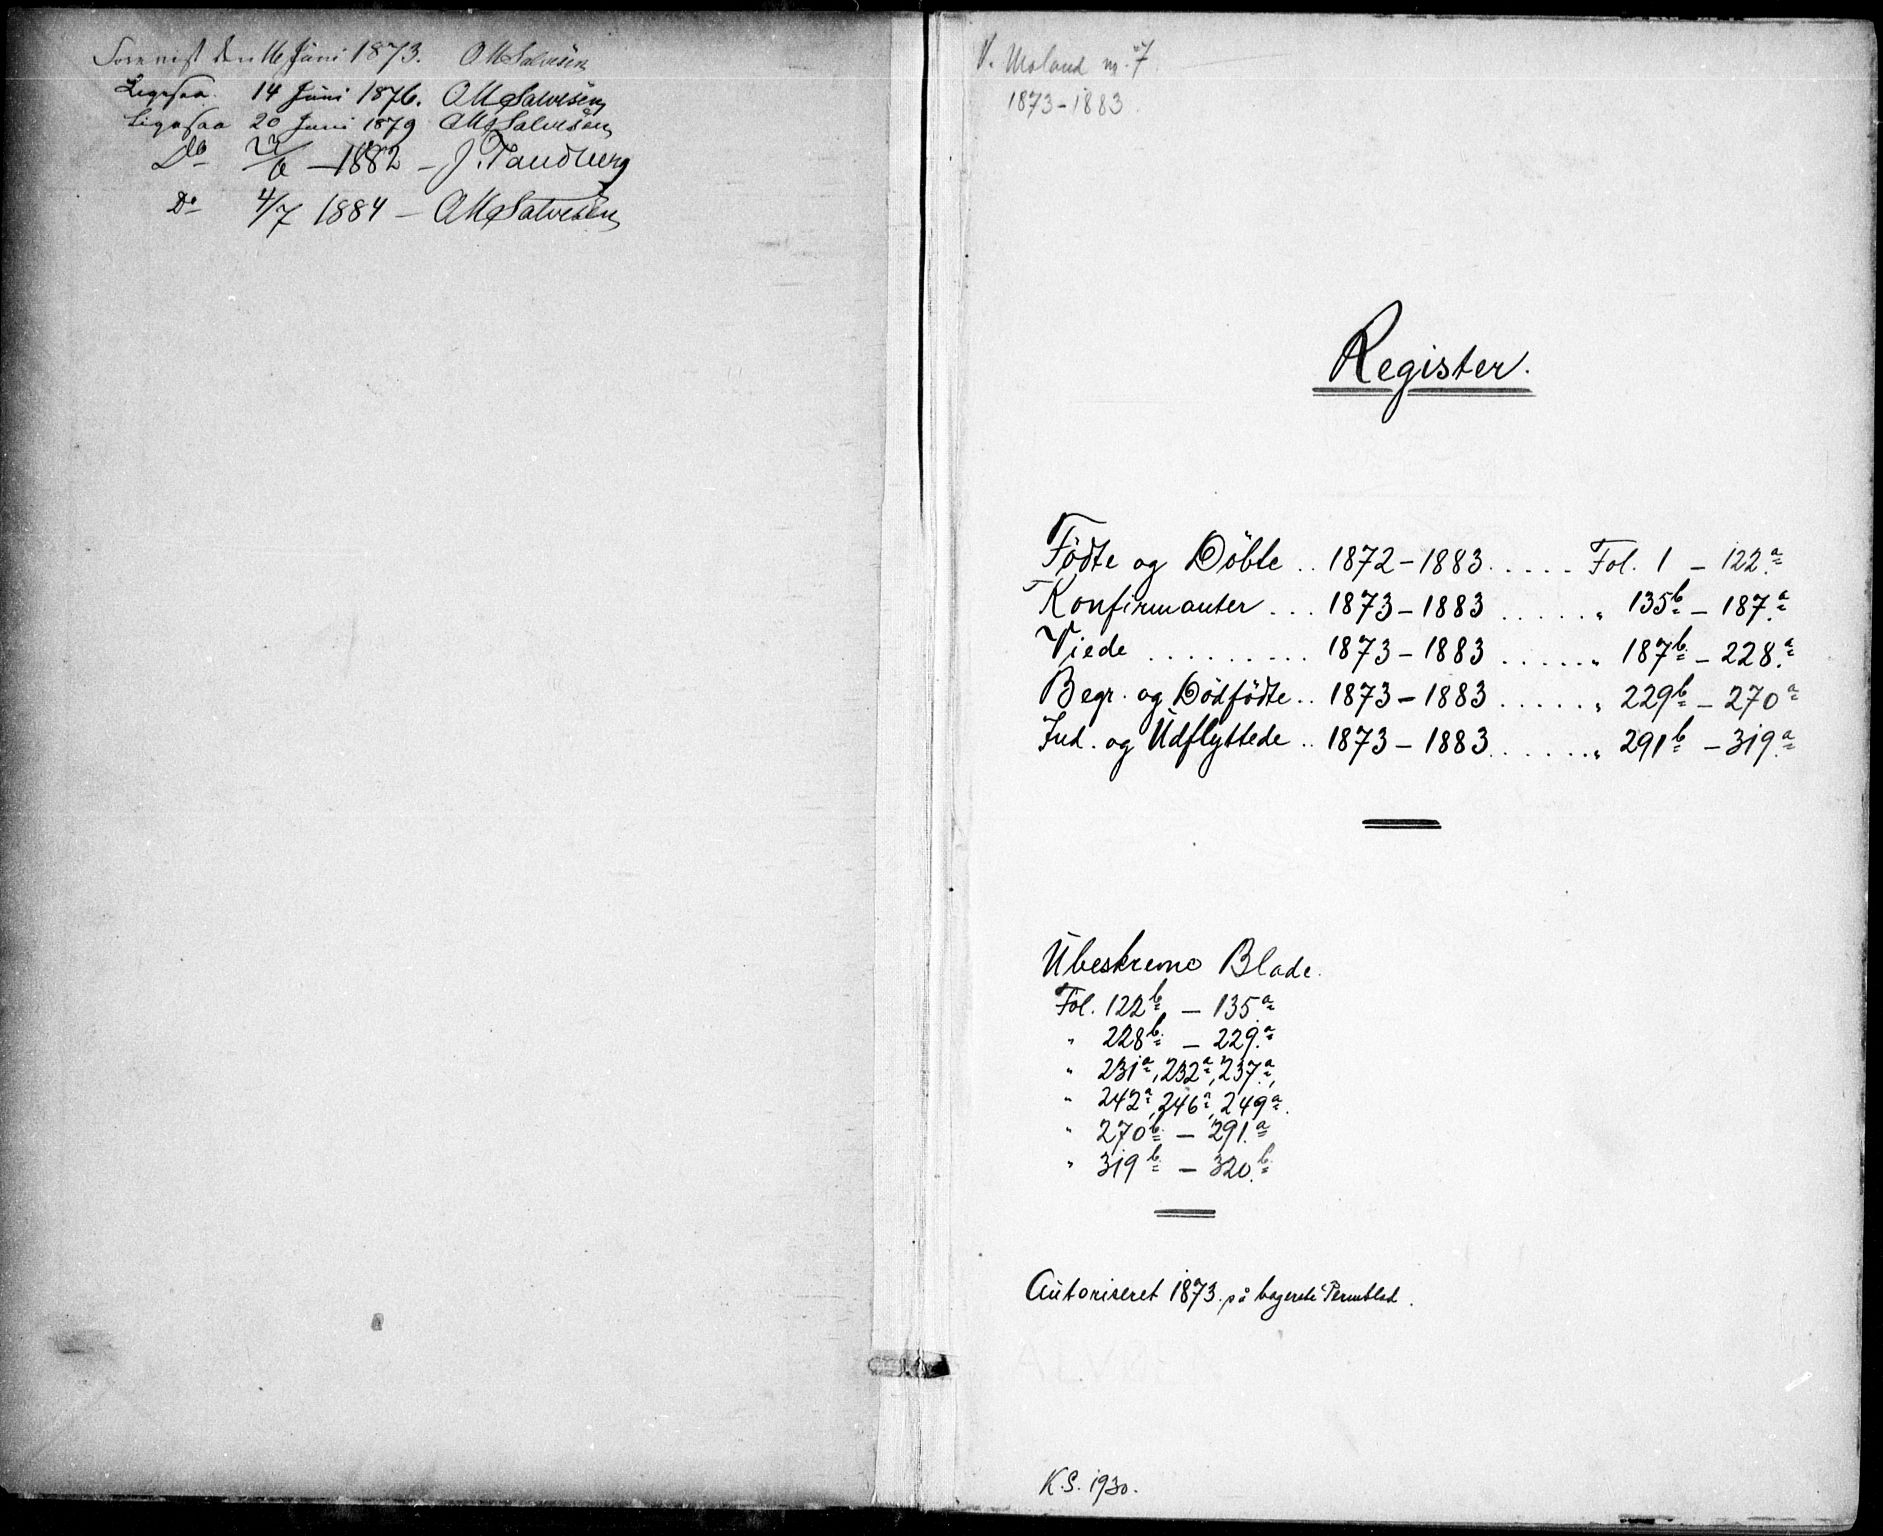 Forevist den 16 Juni 1873. OMSalvesen
Ligesaa 14 Juni 1876. OMSalvesen
Ligesaa 20 Juni 1879 OMSalvesen
Do /6 – 1882 – J. Tandberg
Do 4/7 1884 – OMSalvesen
V. Moland nr. 7
1873-1883.
Register.
Fødte og Døbte .. 1872-1883 ..... Fol. 1 – 122.a
Konfirmanter ... 1873-1883 ..... " 135b – 187.a
Viede ......... 1873-1883 ..... " 187b – 228.a
Begr. og Dødfødte .. 1873-1883 ..... " 229b – 270a
Ind. og Udflyttede .. 1873-1883 ..... " 291b – 319.a
Ubeskrevne Blade.
Fol. 122b – 135a
" 228b – 229.a
" 231a, 232a, 237a,
" 242a, 246a, 249a.
" 270b – 291.a
" 319b – 320.b
Autoriseret 1873 på bagerste Permblad.
K.S. 1930.